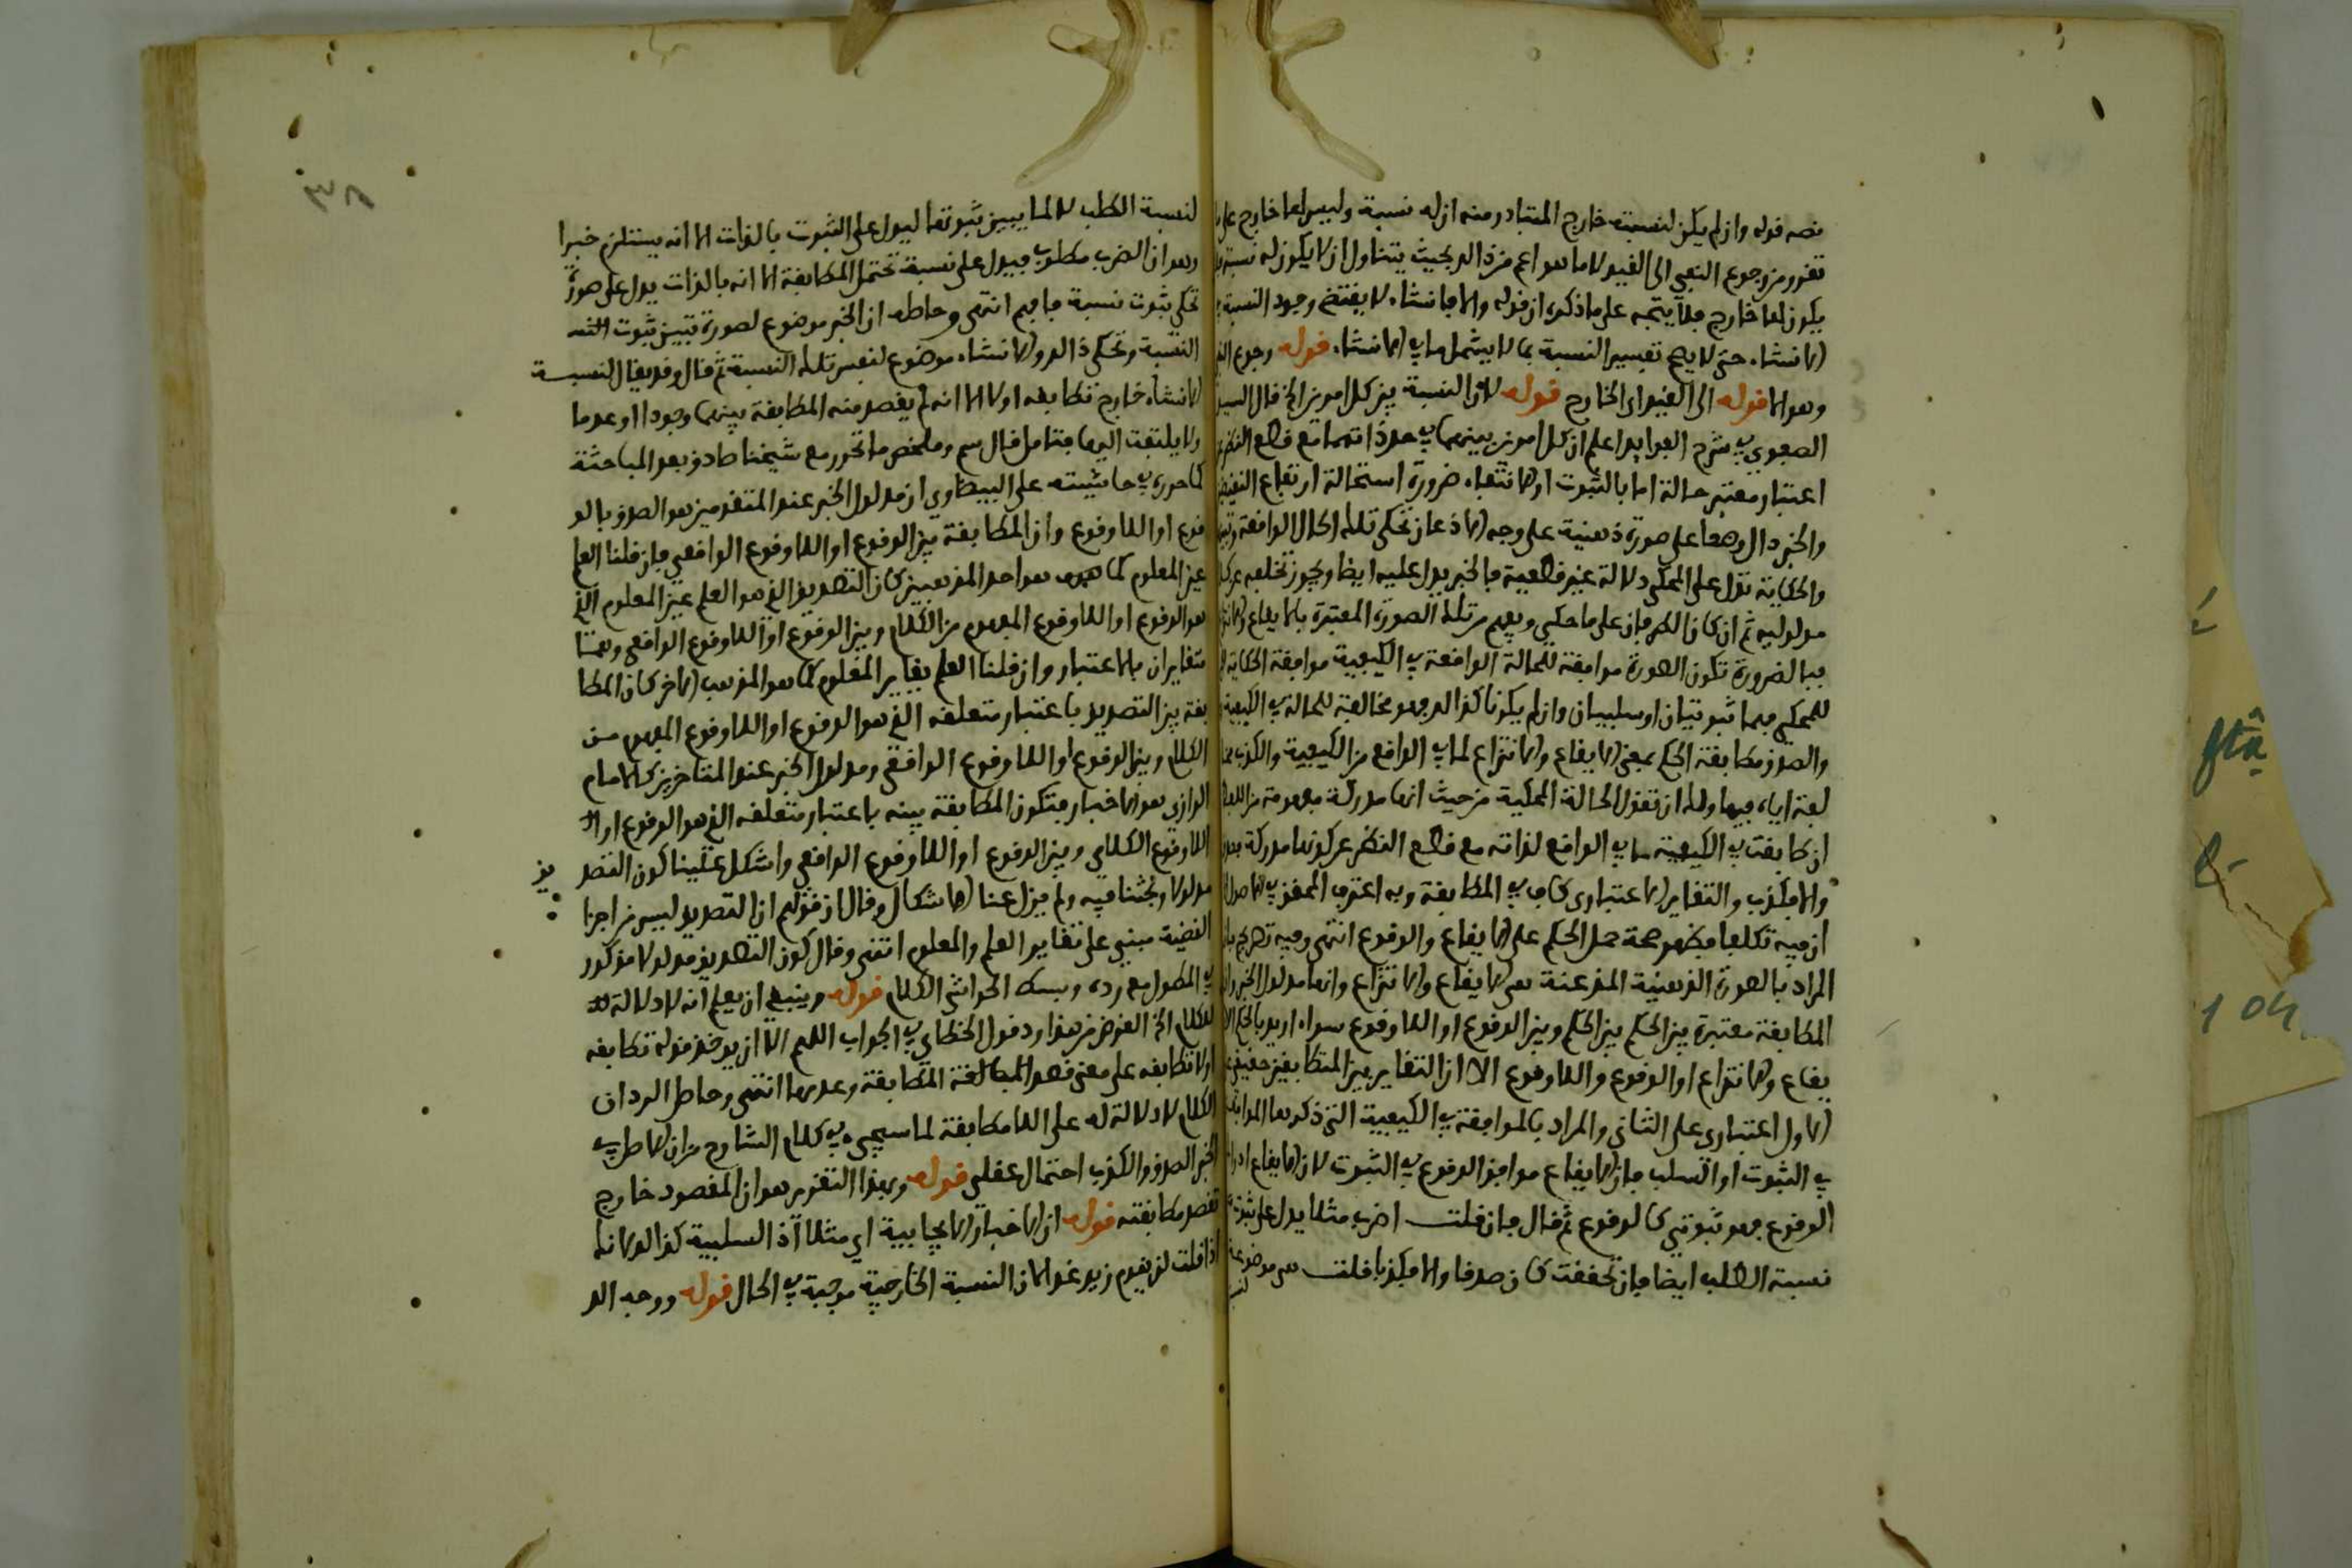 نصه قوله وان لم يكن لنسبته خارج المتبادر منه ان له نسبة وليس لها خارج على
تقرر من رجوع النفي الى القيد لا ما هو اعم من ذلك بحيث يتناول ان لا يكون له نسبة
يكون لها خارج فلا يتجه على ما ذكره ان قوله والا فانشاء لا يقتضي وجود النسبة
الانشاء حتى لا يصح تفسير النسبة بما لا يشمل ما في الانشاء قوله رجوع
وهو الا قوله الى القيد اي الخارج قوله لان النسبة بين كل امرين الخ قال السيد
الصفوي في شرح الفوايد اعلم ان كل امرين بينهما في حد ذاتهما مع قطع النظر
اعتبار معتبر حالة اما بالثبوت او الانتفاء ضرورة استحالة ارتفاع النقيضين
والخبر دال وضعا على صورة ذهنية على وجه الاذعان تحكي تلك الحال الواقعة
والحكاية تدل على المحكي دلالة غير قطعية فالخبر يدل عليه ايضا ويجوز تخلفه عن
مدلوليه ثم ان كان الطرفان على ما حكي ويفهم من تلك الصورة المعتبرة بالايقاع
فبالضرورة تكون الصورة موافقة للحالة الواقعة في الكيفية موافقة الحكاية
للمحكي فهما ثبوتيان او سلبيان وان لم يكونا كذلك فهو مخالفة للحالة في الكيفية
والصدق مطابقة الحكم بمعنى الايقاع والانتزاع لما في الواقع من الكيفية والكذب
لفة اياه فيها ولك ان تقول الحالة المحكية من حيث انها مدركة مفهومة من اللفظ
ان طابقت في الكيفية ما في الواقع لذاته مع قطع النظر عن كونها مدركة
والا فكذب والتغاير الاعتباري كاف في المطابقة وبه اعترف المحقق في
ان فيه تكلفا فظهر صحة حمل الحكم على الايقاع والوقوع انتهى وفيه تصريح
المراد بالصورة الذهنية المذعنة هي الايقاع والانتزاع وانها مدلول الخبر
المطابقة معتبرة بين الحكم بين الحكم وبين الوقوع او اللاوقوع سواء اريد بالحكم
يقاع والانتزاع او الوقوع واللاوقوع الا ان التغاير بين المتطابقين حقيقي
الاول اعتباري على الثاني والمراد بالموافقة في الكيفية التي ذكرها
في الثبوت او السلب فان الايقاع موافق الوقوع في الثبوت لان الايقاع
الوقوع فهو ثبوتي كالوقوع ثم قال فان قلت اضرب مثلا يدل على
نسبة الطلب ايضا فان تحققت كان صدقا والا فكذبا قلت هي موضوعة
لنسبة الطلب لا لما يبين ثبوتها ليدل على الثبوت بالذات الا انه يستلزم خبرا
وهو ان الضرب مطلوب فيدل على نسبة تحتمل المطابقة الا انه بالذات يدل على صورة
تحكي ثبوت نسبة فافهم انتهى وحاصله ان الخبر موضوع لصورة تبين ثبوت
النسبة وتحكي ذلك والانشاء موضوع لنفس تلك النسبة ثم قال وقد يقال لنسبة
الانشاء خارج تطابقه اولا الا انه لم يقصد منه المطابقة بينهما وجودا او عدما
ولا يلتفت اليها فتامل قال سم وملخص ما تحرر مع شيخنا صادق بعد المباحثة
كما حرره في حاشيته على البيضاوي ان مدلول الخبر عند المتقدمين هو الصدق بالو
قوع او اللاوقوع وان المطابقة بين الوقوع او اللاوقوع الواقعي فان قلنا العلم
عين المعلوم كما هو احد المذهبين كان التصديق الذي هو العلم عين المعلوم الذي
هو الوقوع او اللاوقوع المفهوم من الكلام وبين الوقوع او اللاوقوع الواقعي وهما
متغايران بالاعتبار وان قلنا العلم يغاير المعلوم كما هو المذهب الاخر كان المطا
بقة بين التصديق باعتبار متعلقه الذي هو الوقوع او اللاوقوع المفهوم من
الكلام وبين الوقوع او اللاوقوع الواقعي ومدلول الخبر عند المتاخرين كالامام
الرازي هو الاخبار فتكون المطابقة بينه باعتبار متعلقه الذي هو الوقوع او
اللاوقوع الكلامي وبين الوقوع او اللاوقوع الواقعي واشكل علينا كون التصديق
مدلولا وبحثنا فيه ولم يزل عنا الاشكال وقال ان قولهم ان التصديق ليس من اجزا
القضية مبني على تغاير العلم والمعلوم انتهى وقال كون التصديق مدلولا مذكور
في المطول مع رده وبسط الحواشي الكلام قوله وينبغي ان يعلم انه لا دلالة
للكلام الخ الغرض من هذا رد قول الخطاي في الجواب اللهم الا ان يوخذ قوله تطابقه
او لا تطابقه على معنى قصد المطابقة وعدمها انتهى وحاصل الرد ان
الكلام لا دلالة له على اللامطابقة لما سيجيء في كلام الشارح من ان الاصل في
الخبر الصدق والكذب احتمال عقلي قوله وبهذا التقرير هو ان المقصود خارج
تقصد مطابقته قوله ان الاخبار الايجابية اي مثلا اذ السلبية كذلك كما
اذا قلت لن يقوم زيد غدا لان النسبة الخارجية موجبة في الحال قوله ووجه الد